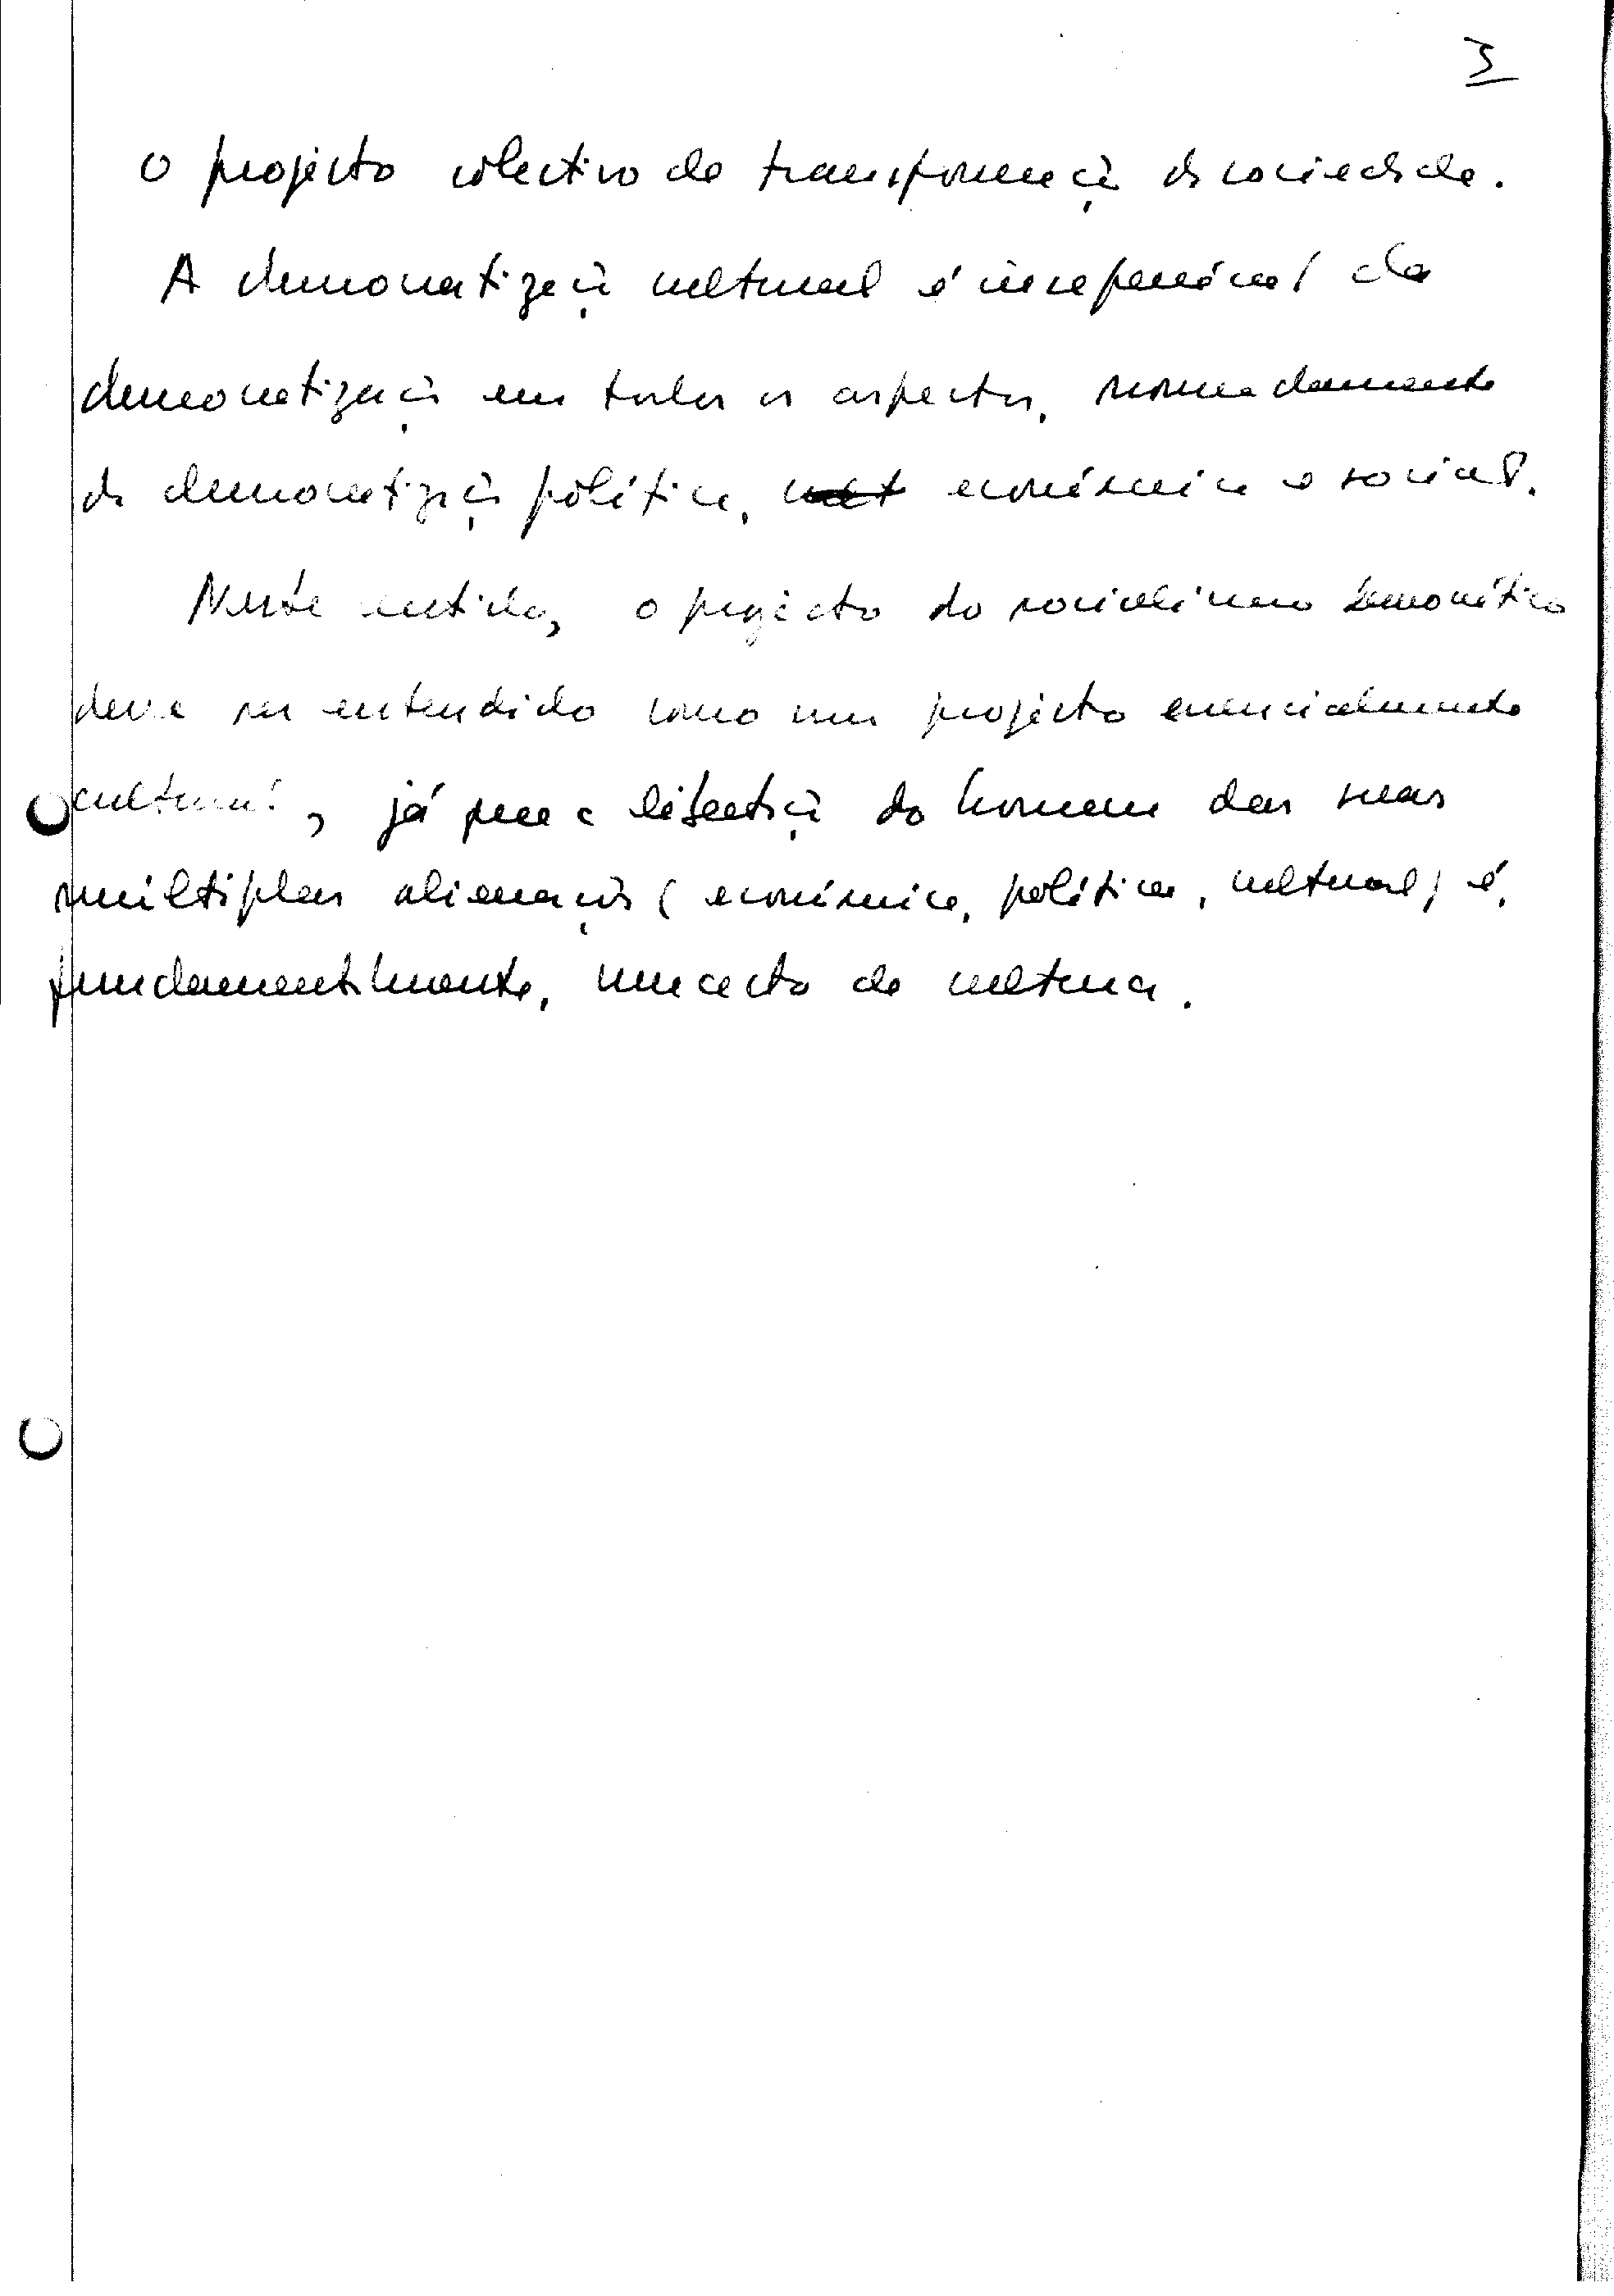 3
o projecto colectivo de transformação da sociedade.
A democratização cultural é inseparável da
democratização em todos os aspectos, nomeadamente
da democratização política, cult económica e social.
Neste sentido, o projecto do socialismo democrático
deve ser entendido como um projecto essencialmente
cultural, já que a libertação do homem das suas
múltiplas alienações (económica, política, cultural) é,
fundamentalmente, um acto de cultura.